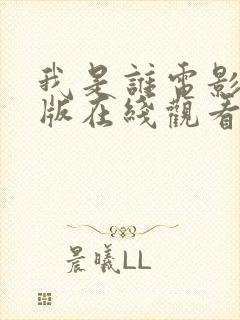 我是誰電影
版在綫觀看
晨曦LL